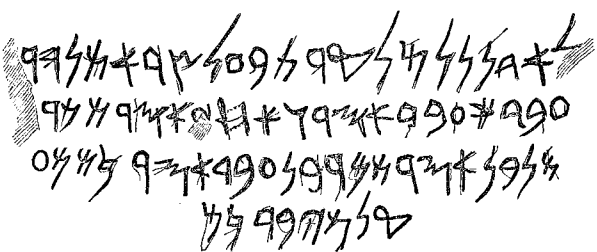 𐤋𐤀𐤃𐤍𐤍𐤋𐤌𐤋𐤒𐤓𐤕𐤁𐤏𐤋𐤑𐤓𐤀𐤔𐤍𐤃𐤓
𐤏𐤁𐤃𐤊𐤏𐤁𐤃𐤀𐤎𐤓𐤅𐤀𐤇𐤉𐤀𐤎𐤓𐤔𐤌𐤓
𐤔𐤍𐤁𐤍𐤀𐤎𐤓𐤔𐤌𐤓𐤁𐤍𐤏𐤁𐤃𐤀𐤎𐤓𐤊𐤔𐤌𐤏
𐤒𐤋𐤌𐤉𐤁𐤓𐤊𐤌